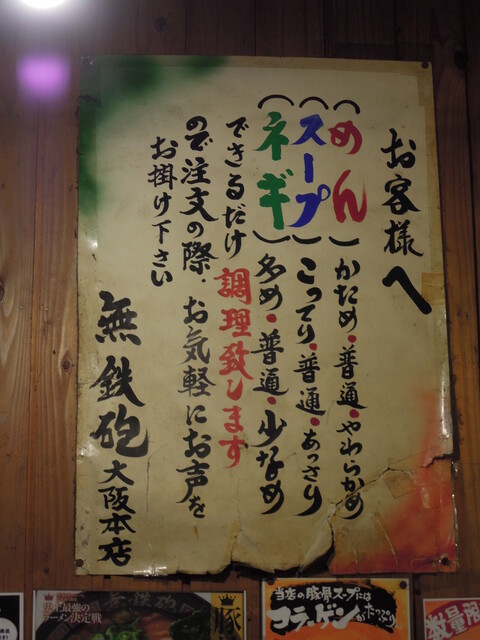 お客様へ
（めん）かため・普通・やわらかめ
（スープ）こってり・普通・あっさり
（ネギ）多め・普通・少なめ
できるだけ調理致します
ので注文の際、お気軽にお声を
お掛け下さい
無鉄砲大阪本店
史上最強の
ラーメン決定戦
豚
当店の豚骨スープには
コラーゲンがたっぷり
数量限